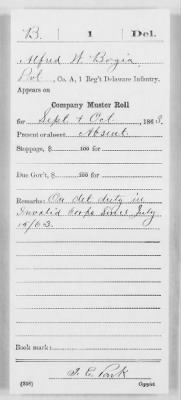 B. 1 Del.
Alfred W. Bogia
Pvt., Co. A, 1 Reg't Delaware Infantry.
Appears on
Company Muster Roll
for Sept & Oct, 1863.
Present or absent Absent
Stoppage, $ 100 for
Due Gov't, $ 100 for
Remarks: On det duty in
Invalid Corps since July
15/63.
Book mark:
(358) Copyist.